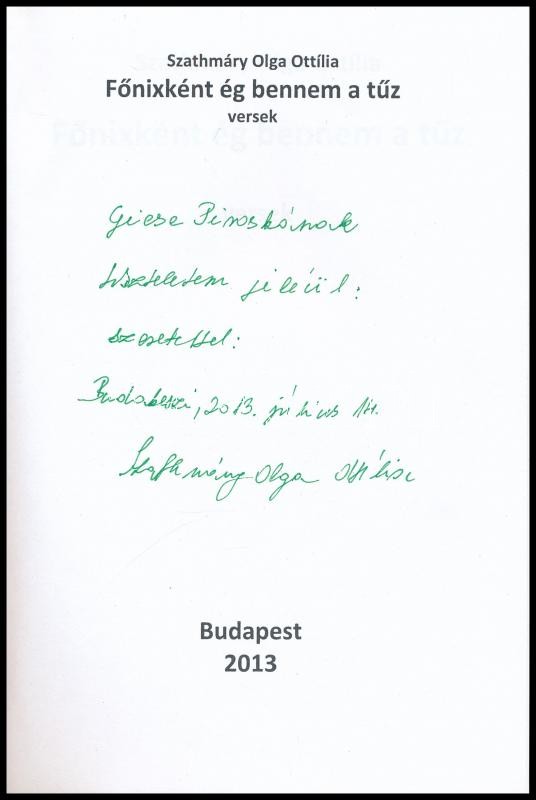 Szathmáry Olga Ottília
Főnixként ég bennem a tűz
versek
Giese Piroskának
tiszteletem jeléül:
szeretettel:
Budakeszi, 2013. július 14.
Szathmáry Olga Ottília
Budapest
2013